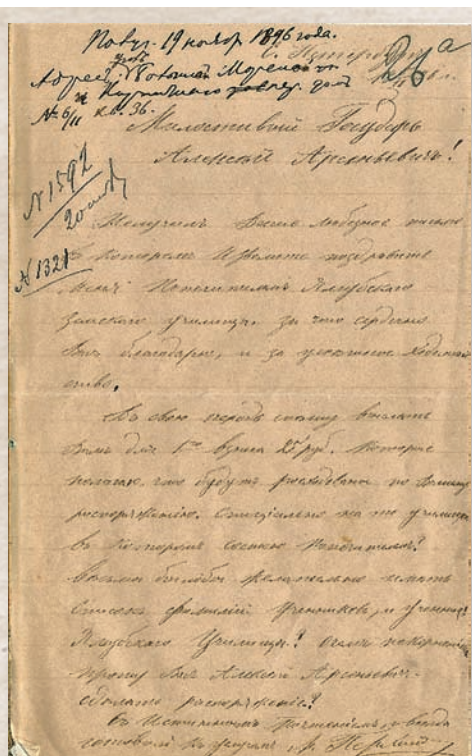 Получ. 19 ноябр 1896 года.
С. Петербург
Адрес:
№ 6/11 кв. 36.
Милостивый Государь
Алексей Арсеньевичъ!
N 1592
N 1321
Получилъ Ваше любезное письмо
въ которомъ Изволите поздравить
меня Попечителемъ Ялгубскаго
Земскаго училища. за что сердечно
Васъ благодарю, и за
Въ свою
Вамъ для 1го взноса 25 руб. Которые
полагаю, что будутъ расходованы по Вашему
распоряженію. Спеціально на то училище
въ Которомъ состою Попечителемъ?
Весьма былобы Желательно иметь
Список фамилій Учениковъ, и учениц
Ялгубскаго Училища?
прошу Васъ Алексей Арсеньевич
сделать распоряженіе?
Съ Истиннымъ Почтеніемъ, и всегда
готовый Къ услугамъ